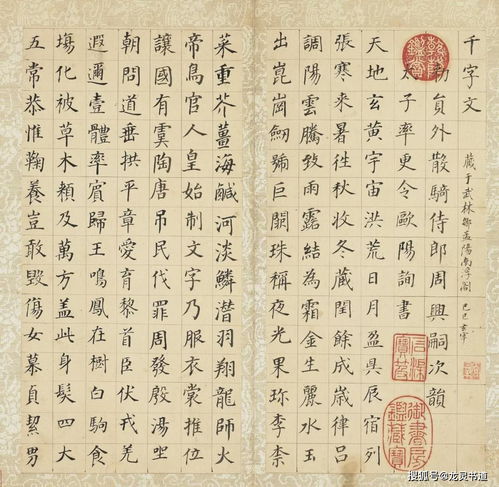 千字文
藏于武林鄒孟陽南浮閣 己巳 玄宰
勅員外散騎侍郎周興嗣次韻
太子率更令歐陽詢書
天地玄黃宇宙洪荒日月盈昃辰宿列
張寒来暑往秋收冬藏閏餘成嵗律吕
調陽雲騰致雨露結為霜金生麗水玉
出崑崗劒號巨闕珠稱夜光果珎李柰
菜重芥薑海鹹河淡鱗潜羽翔龍師火
帝鳥官人皇始制文字乃服衣裳推位
讓國有虞陶唐吊民伐罪周發殷湯坐
朝問道垂拱平章愛育黎首臣伏戎羌
遐邇壹體率賓歸王鳴鳳在樹白駒食
塲化被草木賴及萬方盖此身髮四大
五常恭惟鞠養豈敢毁傷女慕貞絜男
乾隆鑑賞
石渠寶笈
御書房鑑藏寶
搜狐号@龙灵书道